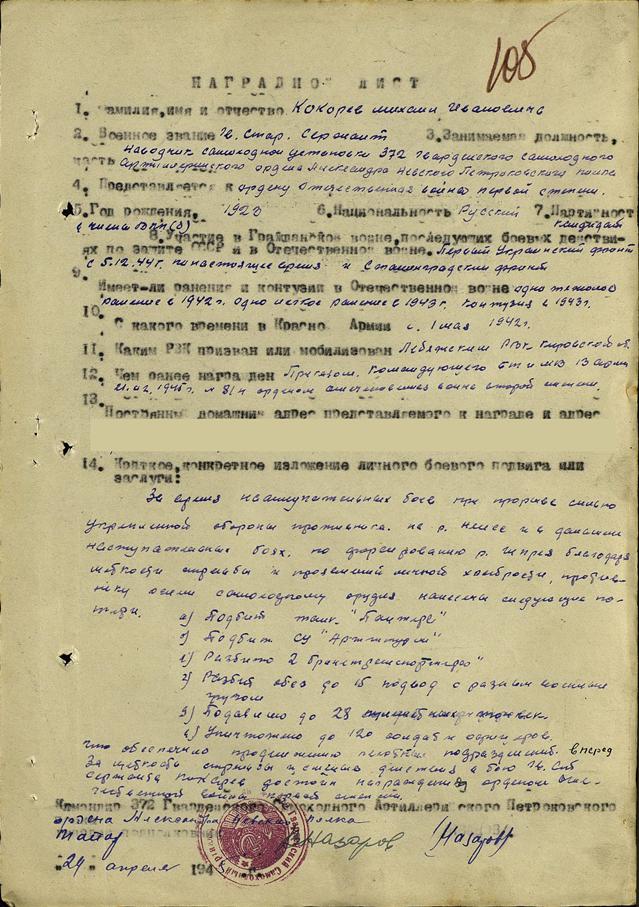 108
НАГРАДНОЙ ЛИСТ
1. Фамилия, имя и отчество Кокорев Михаил Иванович
2. Военное звание Гв. Стар. Сержант 3. Занимаемая должность,
часть Наводчик самоходной установки 372 гвардейского самоходного
Артиллерийского ордена Александра Невского Петроковского полка
4. Представляется к ордену Отечественная война первой степени.
5. Год рождения, 1923 6. Национальность Русский 7. Партийност
кандидат
в члены ВКП(б)
8. Участие в Гражданской войне, последующих боевых действи-
ях по защите СССР и в Отечественной войне. Первый Украинский фронт
с 5.12.44г. по настоящее время и Сталинградский фронт
9.
Имеет-ли ранения и контузии в Отечественной войне одно тяжелое
ранение в 1942г. одно легкое ранение в 1943г. контузия в 1943г.
10.
С какого времени в Красно Армии с 1 мая 1942г.
11. Каким РВК призван или мобилизован Лебяжским РВК Кировской об.
12. Чем ранее награжден Приказом Командующего БТ и МВ 13 Армии
21.02.1945г. № 8/н орденом отечественная война второй степени.
13.
Постоянный домашний адрес представляемого к награде и адрес
14. Краткое, конкретное изложение личного боевого подвига или
заслуги:
За время наступательных боев при прорыве сильно
укрепленной обороны противника на р. Нейсе и в дальней
наступательных боях по форсированию р. Шпрее благодаря
меткости стрельбы и проявленной личной храбрости, против-
нику огнем самоходного орудия нанесены следующие по-
тери.
а) Подбит танк "Пантера"
б) Подбит СУ "Артштурм"
1) Разбито 2 бронетранспортера"
2) Разбит обоз до 15 подвод с разным военным
грузом
3) Подавлено до 28
4) Уничтожено до 120 солдат и офицеров.
Что обеспечило продвижению пехотных подразделений вперед
За меткость стрельбы и смелые действия в бою Гв. Ст.
Сержант Кокорев достоин награждения орденом Оте-
чественной войны первой степени.
Командир 372 Гвардейского Самоходного Артиллерийского Петроковского
ордена Александра Невского полка
Майор Назаров (Назаров)
"24" апреля 194